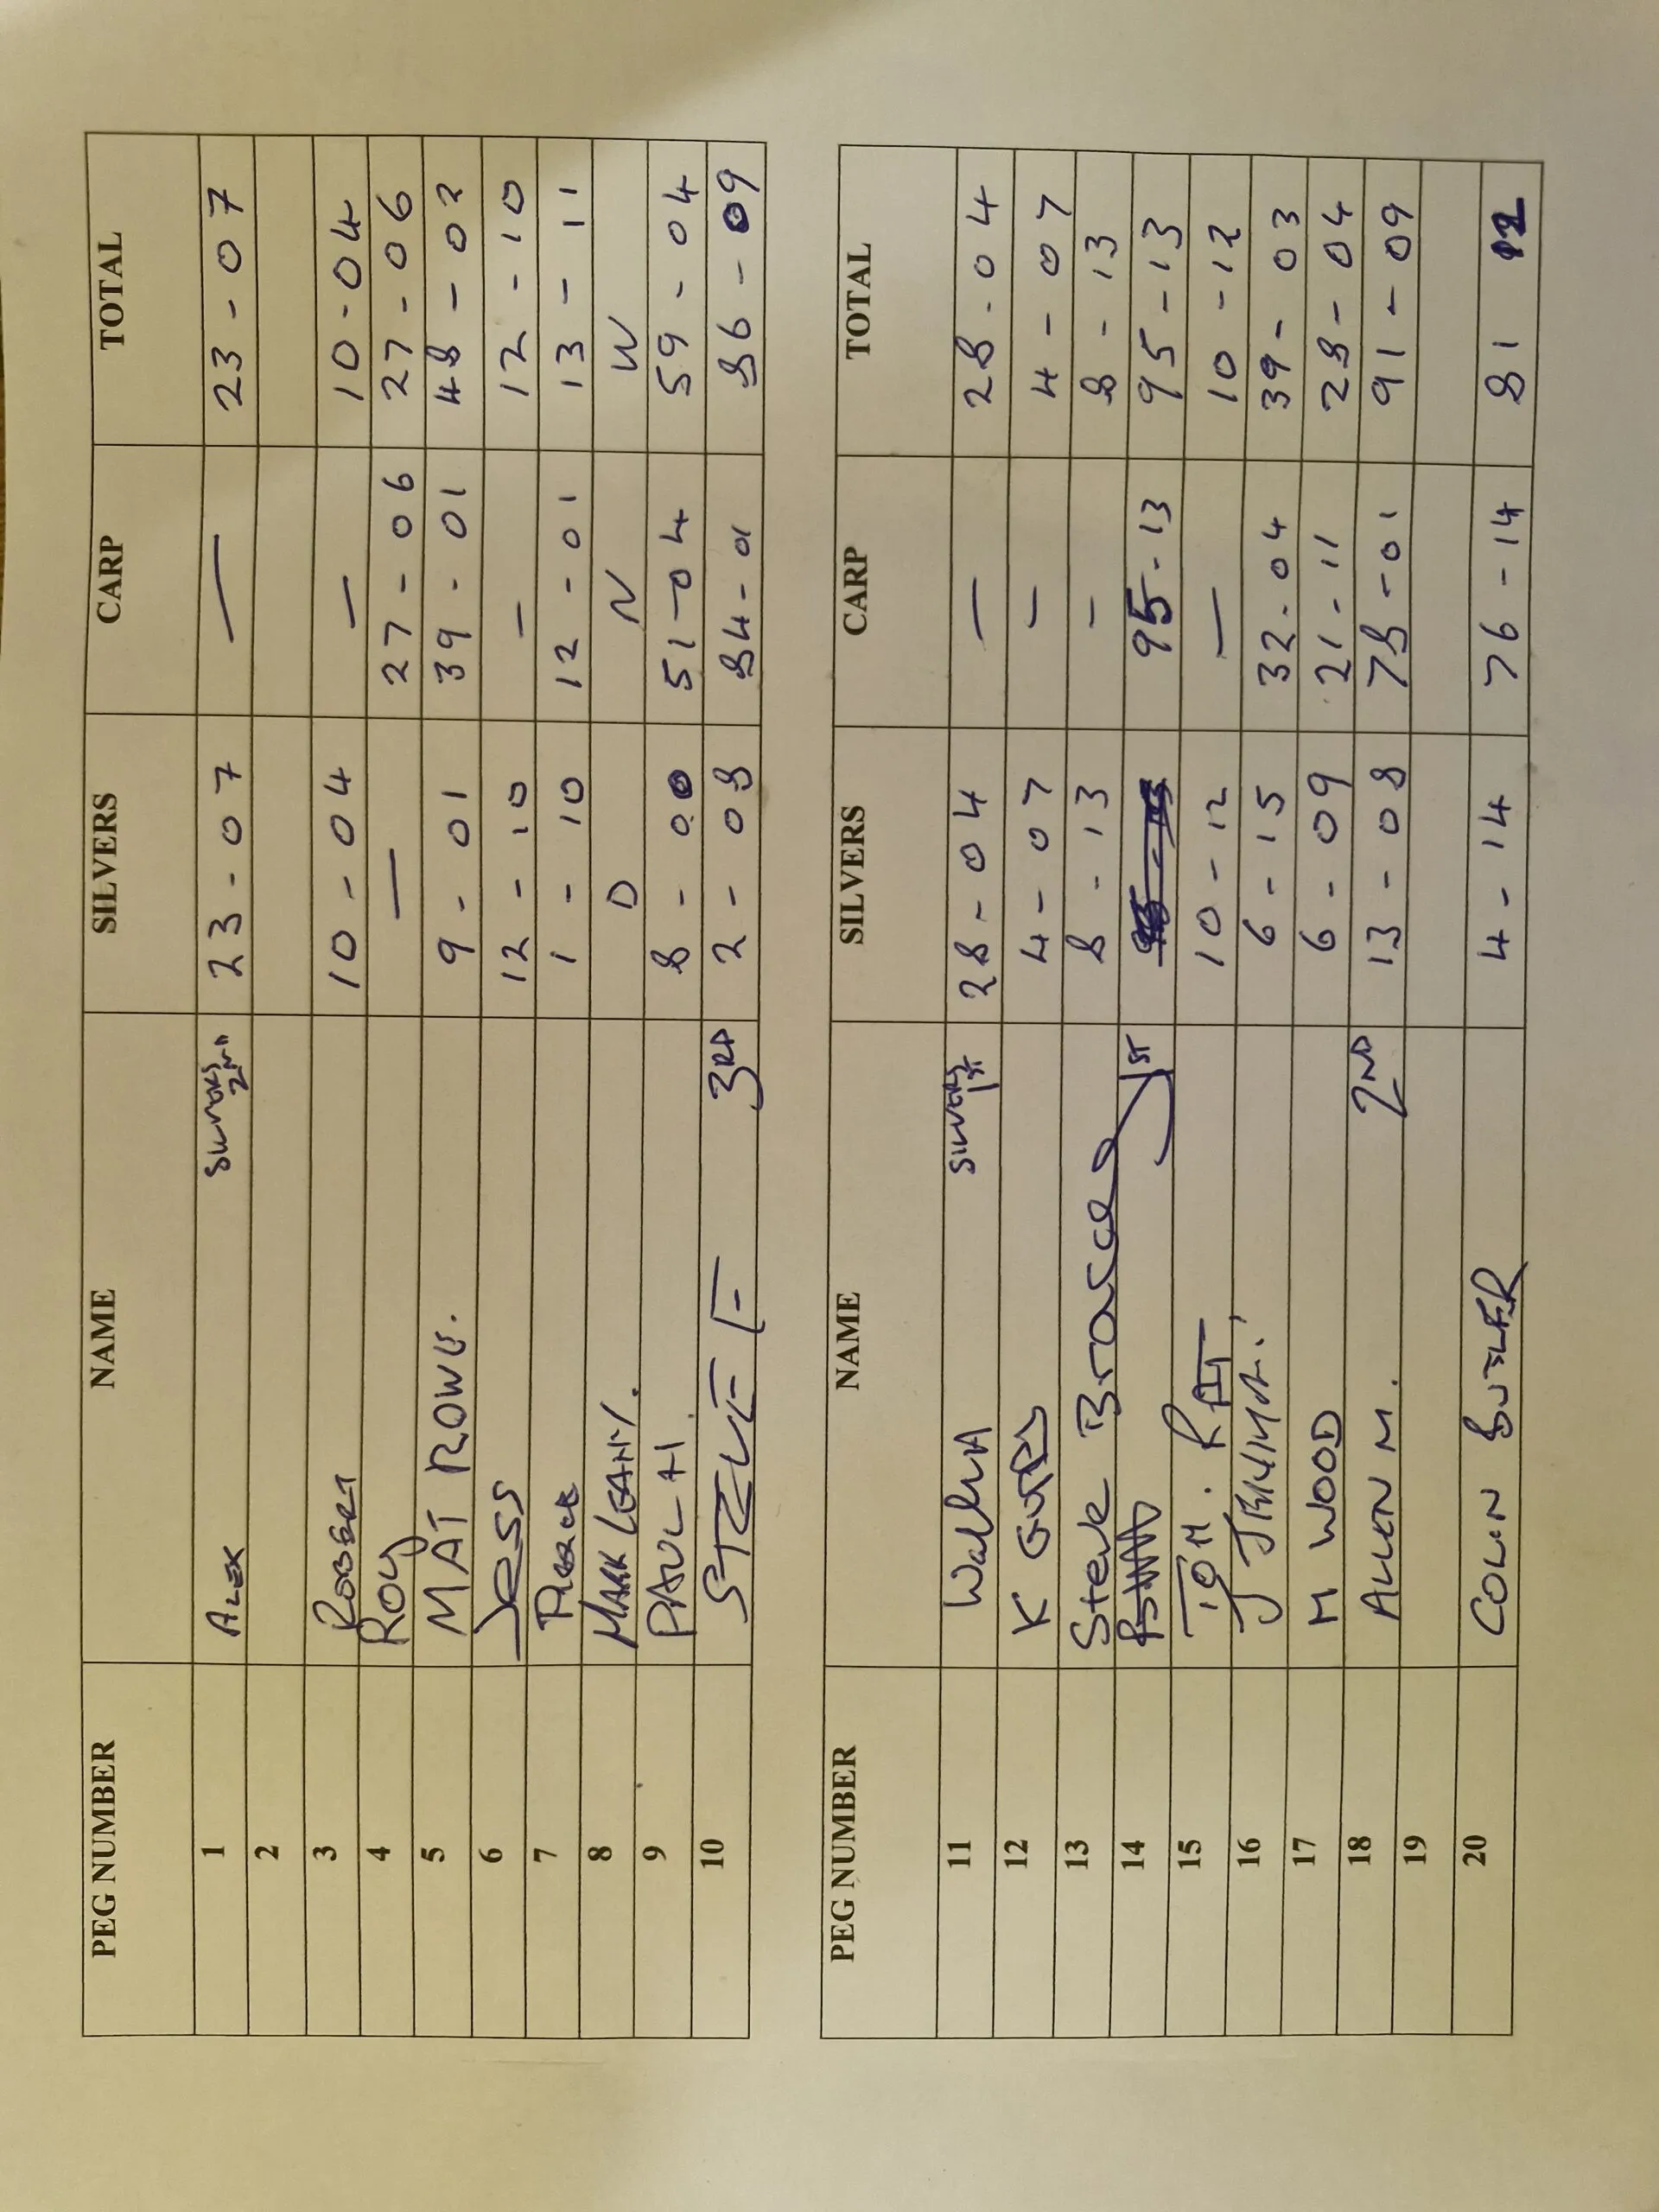 PEG NUMBER NAME SILVERS CARP TOTAL
1 ALEX SILVERS 2ND 23-07 — 23-07
2
3 ROBERT 10-04 — 10-04
4 ROY — 27-06 27-06
5 MAT ROWE. 9-01 39-01 48-02
6 JESS 12-10 — 12-10
7 1-10 12-01 13-11
8 MARK LEAHY. D N W
9 PAUL H. 8-00 51-04 59-04
10 STEVE F 3RD 2-08 84-01 86-09
PEG NUMBER NAME SILVERS CARP TOTAL
11 SILVERS 1ST 28-04 — 28-04
12 K 4-07 — 4-07
13 Steve 8-13 — 8-13
14 1ST 95-13 95-13
15 TOM. R 10-12 — 10-12
16 J 6-15 32-04 39-03
17 M WOOD 6-09 21-11 28-04
18 ALLEN M. 2ND 13-08 78-01 91-09
19
20 COLIN BUTLER 4-14 76-14 81 12